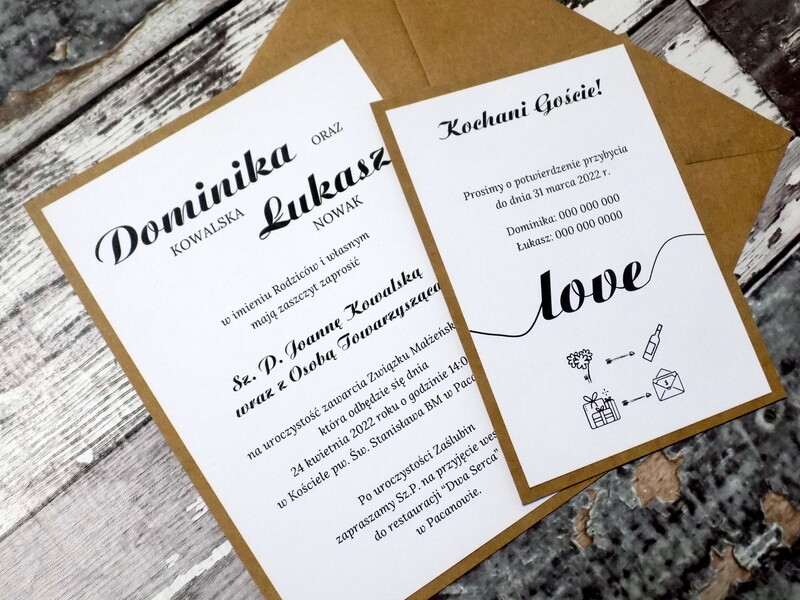 Dominika
ORAZ
KOWALSKA
Łukasz
NOWAK
w imieniu Rodziców i własnym
mają zaszczyt zaprosić
Sz. P. Joannę Kowalską
wraz z Osobą Towarzyszącą
na uroczystość zawarcia Związku
która odbędzie się dnia
24 kwietnia 2022 roku o godzinie 14:0
w Kościele pw. Św. Stanisława BM w
Po uroczystości Zaślubin
zapraszamy Sz.P. na przyjęcie
do restauracji "Dwa Serca"
w Pacanowie.
Kochani Goście!
Prosimy o potwierdzenie przybycia
do dnia 31 marca 2022 r.
Dominika: 000 000 000
Łukasz: 000 000 0000
love